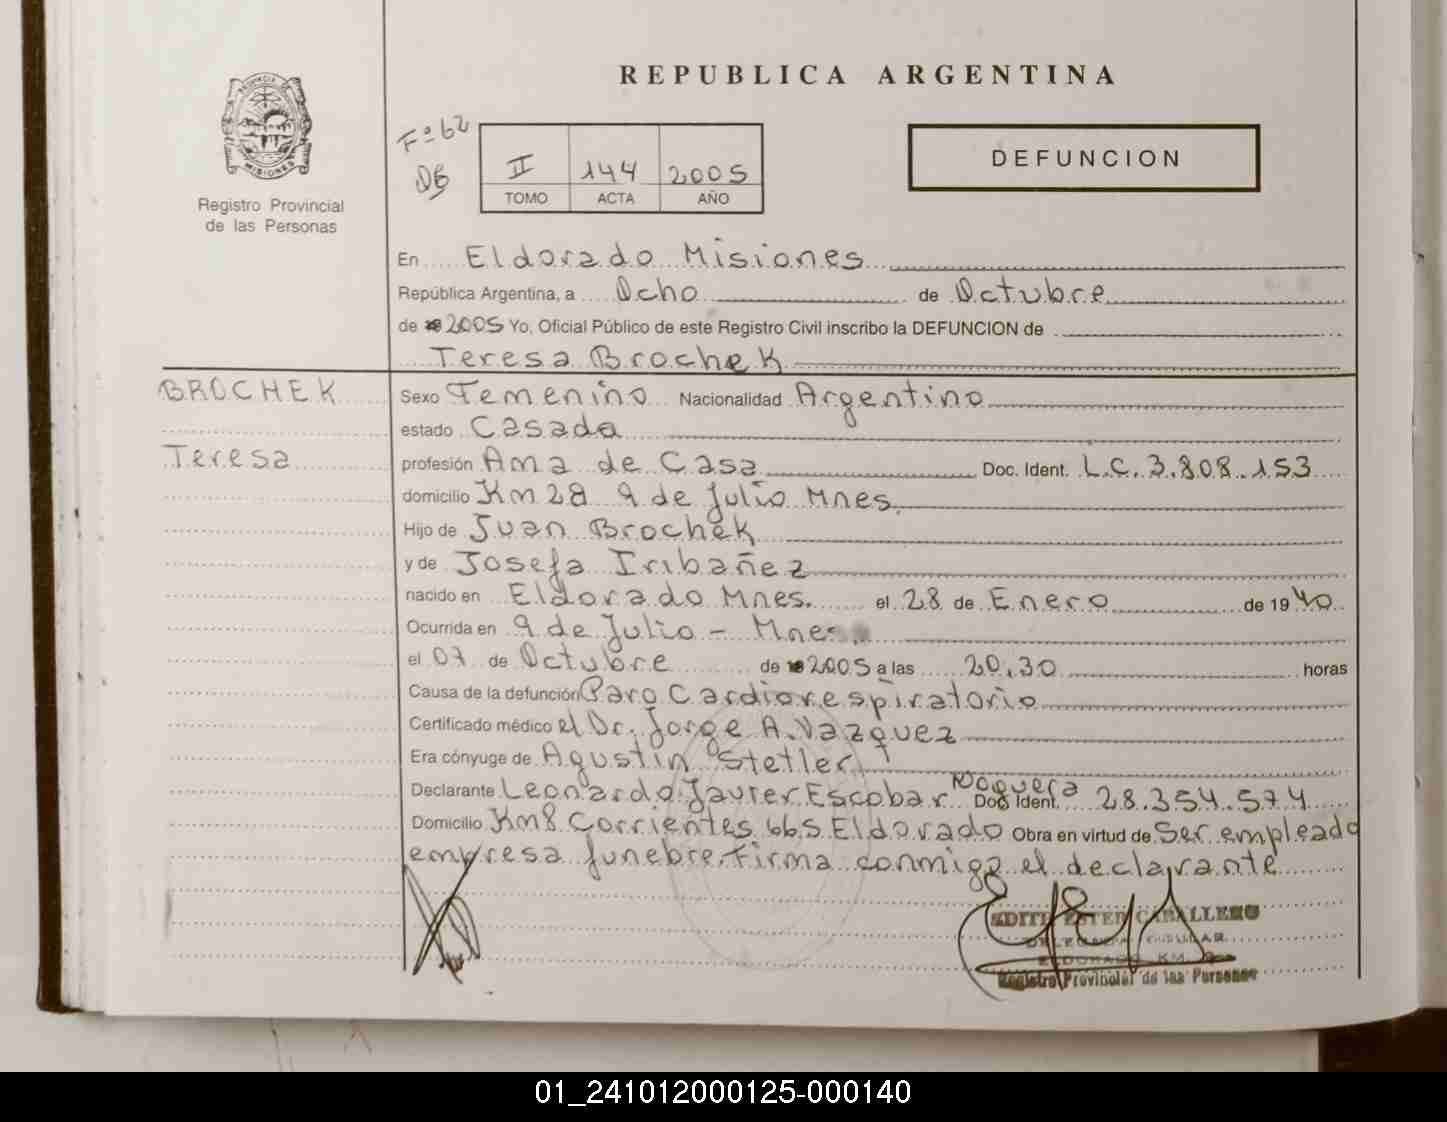 REPUBLICA ARGENTINA
PROVINCIA DE
MISIONES
Registro Provincial
de las Personas
Fº 62
DB
II 144 2005
TOMO ACTA AÑO
DEFUNCION
En Eldorado Misiones
República Argentina, a Ocho de Octubre
de 2005 Yo, Oficial Público de este Registro Civil inscribo la DEFUNCION de
Teresa Brochek
BROCHEK
Teresa
Sexo Femenino Nacionalidad Argentino
estado Casada
profesión Ama de Casa Doc. Ident. L.C. 3.808.153
domicilio Km 28 9 de Julio Mnes.
Hijo de Juan Brochek
y de Josefa Iribañez
nacido en Eldorado Mnes. el 28 de Enero de 1940
Ocurrida en 9 de Julio - Mnes
el 07 de Octubre de 2005 a las 20,30 horas
Causa de la defunción Paro Cardiorespiratorio
Certificado médico el Dr. Jorge A. Vazquez
Era cónyuge de Agustin Stetler
Declarante Leonardo Javier Escobar Noguera Doc. Ident. 28.354.574
Domicilio Km8 Corrientes 665 Eldorado Obra en virtud de Ser empleado
empresa funebre. Firma conmigo el declarante
EDITH ESTER CABALLERO
DELEGADA TITULAR
ELDORADO KM.
Registro Provincial de las Personas
01_241012000125-000140